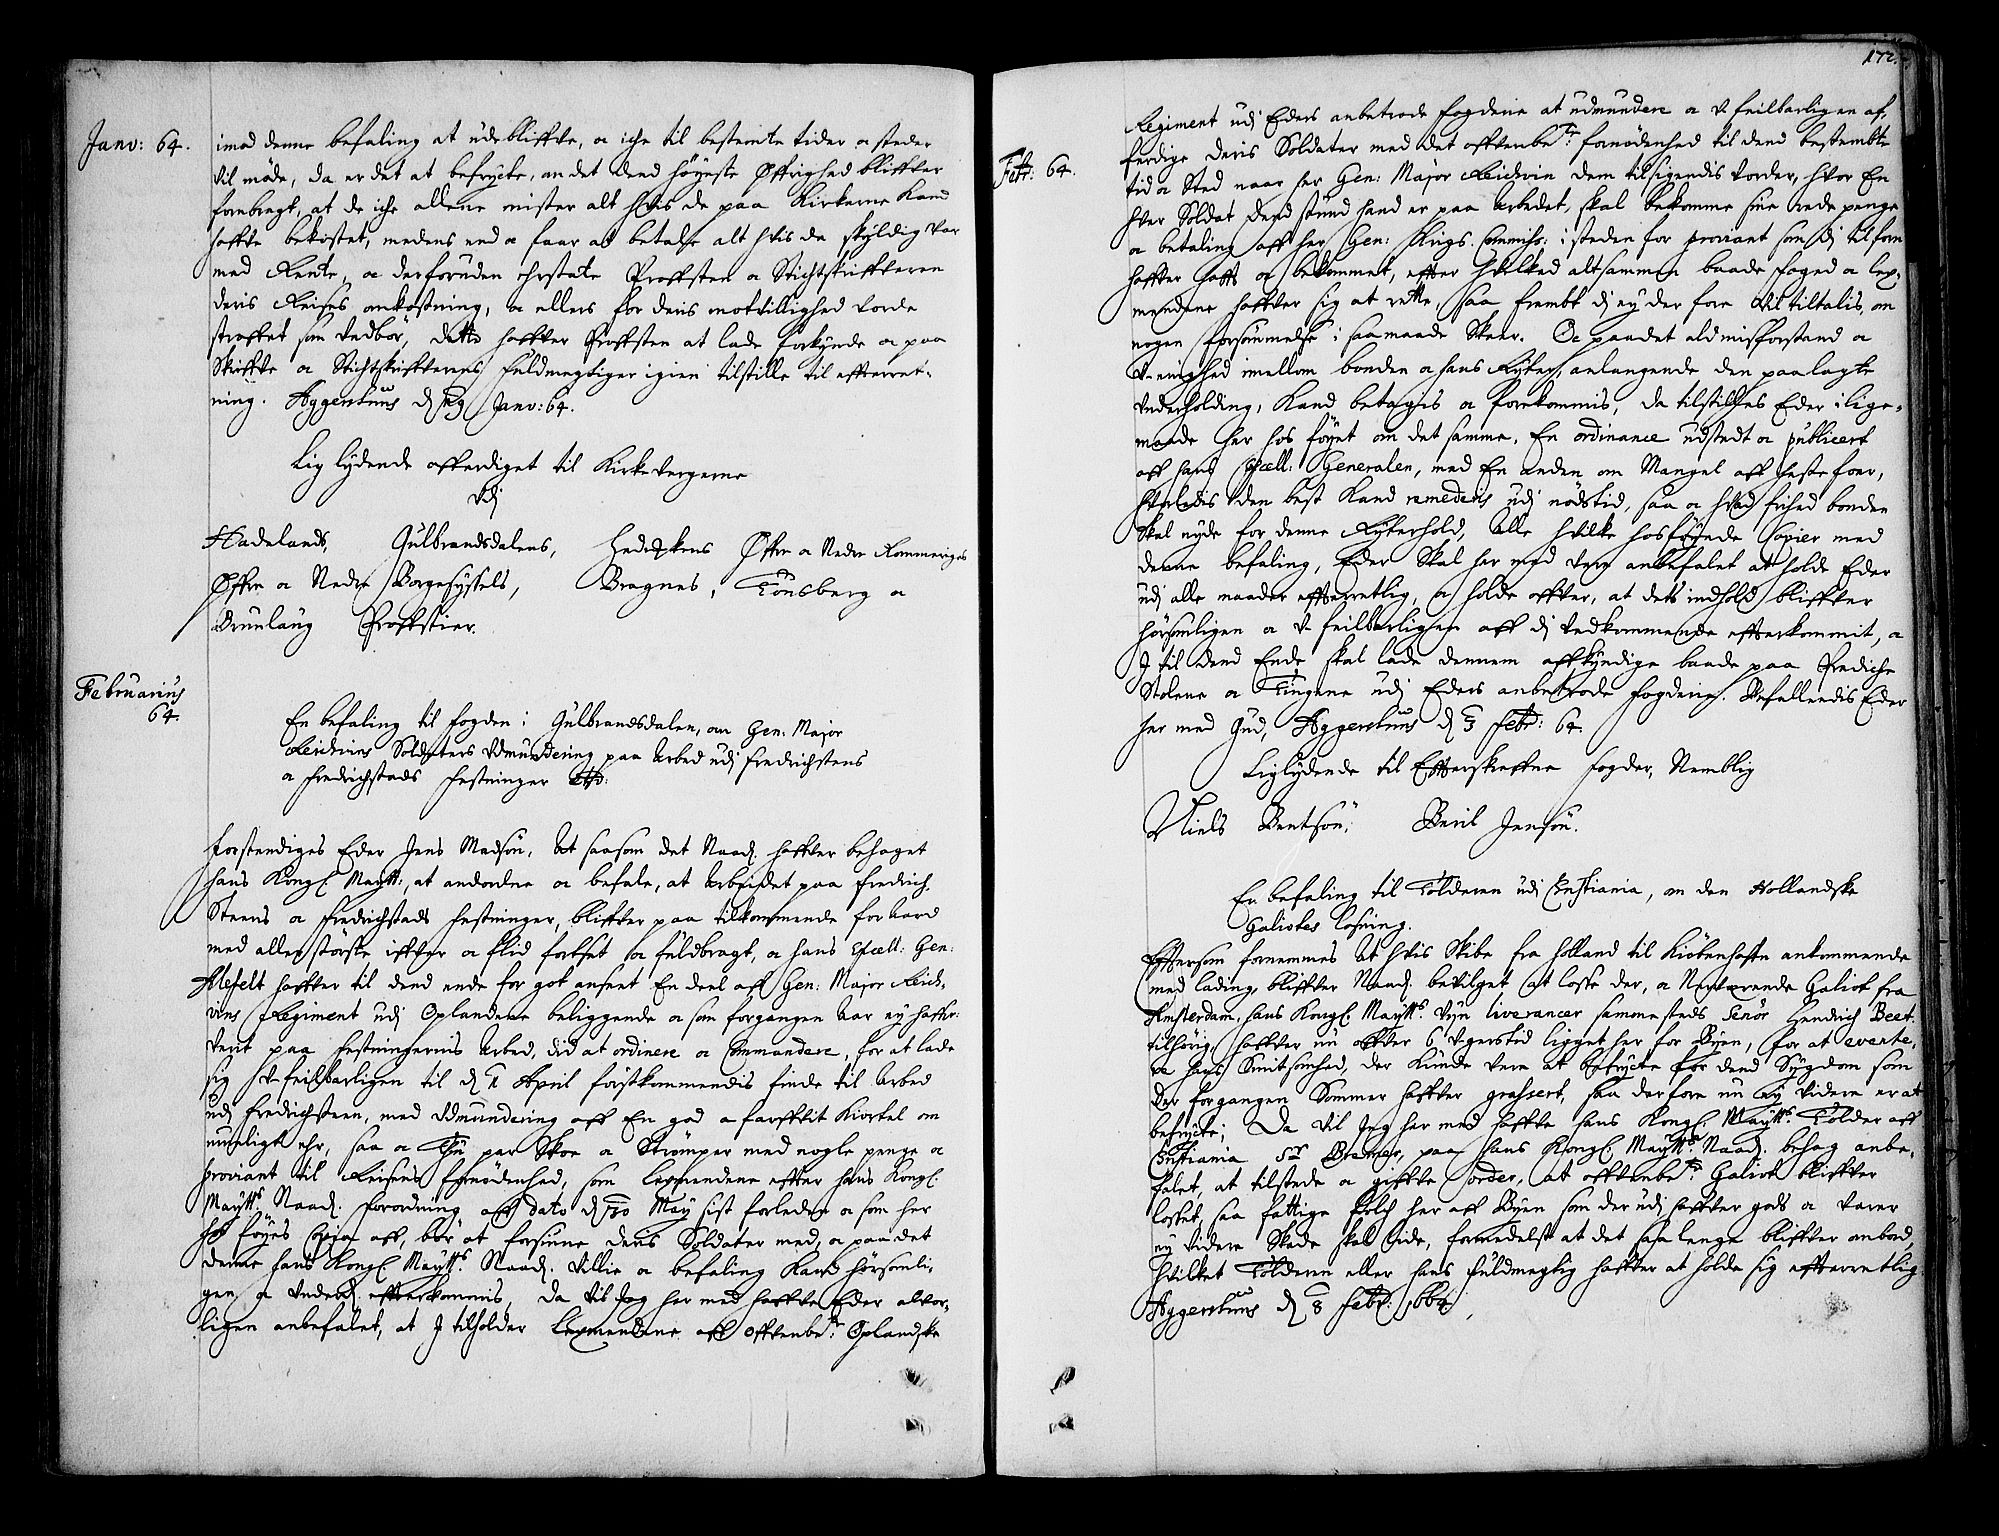 Janv: 64.
imod denne befaling at udebliffve, oc iche til bestemte tider oc steder
vil möde, da er det at befrycte, om det dend höyeste Öffrighed bliffver
forebragt, at de iche allene mister alt hvis de paa Kirkerne kand
haffve bekostet, medens end oc faar at betale alt hvis de skyldig var
med Rente, oc derforuden erstate Proffsten oc Stichtskriffveren
deris Reises omkostning, oc ellers for deris motvillighed vorde
straffet som vedbör, dette haffver Proffsten at lade forkynde oc paa
Skriffve oc Stichtskriffverens fuldmegtiger igien tilstille til effterret-
ning. Aggershuus d 29 Janv: 64.
Liglydende afferdiget til Kirkevergerne
Vdj
Hadelands, Gulbrandsdalens, Hedemkens Öffre oc Nedre Rommeriges
Öffre oc Nedre Borgesyssels, Bragnes, Tönsberg oc
Brunlaug Proffstier.
Februarius
64.
En befaling til fogden i Gulbrandsdalen, om Gen: Major
Reichvins Soldaters Udmundering paa Arbed udj Fredrichstens
oc Fredrichstads Festninger
Forstendiges Eder Jens Madsön, At saasom det Naad. haffver behaget
hans Kongl. Maytt:, at anordne oc befale, at Arbeidet paa Fredrich-
Steens oc Fredrichstads Festninger, bliffver paa tilkommende for Aard
med aller störste iffver oc flid fortset oc fuldbragt, oc hans Excell: Gen:
Alefelt haffver til dend ende for got anseet En deel aff Gen: Major Reich-
vins Regiment udj Oplandene beliggende oc som forgangen Aar ey haffr:
verit paa Festningernis Arbed, did at ordinere oc Commandere, for at lade
sig V-feilbarligen til d 1 April förstkommendis finde til Arbed
udj Fredrichsteen, med Udmundering aff En god oc farffvit Kiortel om
mueligt ehr, saa oc Thu par Skoe oc Strömper med nogle penge oc
proviant til Reisens fornödenhed, som Legmendene effter hans Kongl.
Maytts. Naad. Forordning aff dato d 20 May sist forleden oc som her
hos föyes Copia aff, bör at forsiune deris Soldater med, oc paa det
denne hans Kongl. Maytts. Naad. Villie oc befaling kand hörsomli-
gen oc underd. effterkommis, Da vil Jeg her med haffve Eder alvor-
ligen anbefalet, at J tilholder Legmendene aff offvenbe.te Oplandske
172.
Febr: 64.
Regiment udj Eders anbetrode fogderie at udmundere oc V-feilbarligen af-
ferdige deris Soldater med det offvenbe.te fornödenhed til dend bestembte
tid oc Sted naar her Gen: Major Reichvin dem tilsigendis vorder, hvor En
hver Soldat dend stund hand er paa Arbedet, skal bekomme sine rede penge
oc betaling aff her Gen: Krigs Commiss: i steden for proviant som dj tilforn
haffver hafft oc bekommet, effter hvilked altsammen baade foged oc leg-
mendene haffver sig at rette, saa frembt dj ey der fore vil tiltalis, om
nogen forsömmelse i saamaade skeer. Oc paa det ald misforstand oc
V-enighed imellem bonden oc hans Ryter, anlangende den paalagte
Underholding, kand betagis oc forekommis, da tilstilles Eder i lige-
maade her hos föyet om det samme, En ordinance udstedt oc publicert
aff hans Excell: Generalen, med En anden om Mangel aff hestefoer,
hvorledis den best kand remederis udj nödstid, saa oc hvad frihed bonden
skal nyde for denne Ryterhold, Alle hvilke hosföyede Copier med
denne befaling, Eder skal her med vere anbefalet at holde Eder
udj alle maader effterretlig, oc holde offver, at dets indhold bliffver
hörsomligen oc V-feilbarligen aff dj vedkommende effterkommit, oc
J til dend Ende skal lade dennem affkyndige baade paa Prediche
Stolene oc Tingene udj Eders anbetrode fogderie. Befallendis Eder
her med Gud, Aggershuus d 3 Febr: 64.
Liglydende til Effterskreffne fogder, Nemblig
Niels Bentsön, Bent Jensön.
En befaling til Tolderen udj Christiania, om den Hollandske
Galiotes losning.
Effersom fornemmes At hvis Skibe fra Holland til Kiöbenhaffn ankommende
med lading, bliffver Naad. bevilget at losse der, oc Nerverende Galiot fra
Amsterdam, hans Kongl. Maytts. Vyn liverancer sammesteds Senör Hendrich Beet.
tilhörig, haffver nu offver 6 Ugerstid ligget her for Byen, for at evente-
re hans Smitsomhed, der kunde vere at befrycte for dend Sygdom som
der forgangen Sommer haffver grassert, saa derfore nu ey videre er at
befrycte; Da vil Jeg her med haffve hans Kongl. Maytts. Tolder aff
Christiania Sr Bremer, paa hans Kongl. Maytts. Naad. behag anbe-
falet, at tilstede oc giffve order, at offvenbe.te Galiot bliffver
losset, saa fattige folch her aff Byen som der udj haffver gods oc Varer
ey videre Skade skal lide, formedelst at det saa lenge bliffver ombord,
hvilket Tolderen eller hans fuldmegtig haffver at holde sig effterretlig
Aggershuus d 8 Febr: 1664.